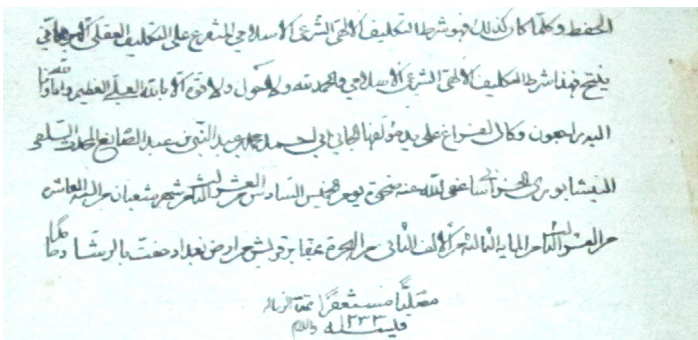 الحفظ وكلما كان كذلك فهو شرط التكليف الالهي الشرعي الاسلامي المتفرع على التكليف العقلي البرهاني
ينتج فهذا شرط التكليف الالهي الشرعي الاسلامي والحمد لله ولا حول ولا قوة الا بالله العلي العظيم وانا لله وانا
اليه راجعون وكان الفراغ على يد مؤلفها الجاني ابي احمد محمد بن عبد النبي بن عبد الصانع المحدث
النيشابوري الخراساني عفى الله عنه ضحوة يوم الخميس السادس من العشر الثالث من شهر شعبان من السنة العاشرة
من العشر الثالث من المائة الثالثة من الالف الثاني من الهجرة بمقابر قريش من ارض بغداد حفت بالرشاد حامدا
مصليا مستغفرا تمت الرسالة
١٢٣٣